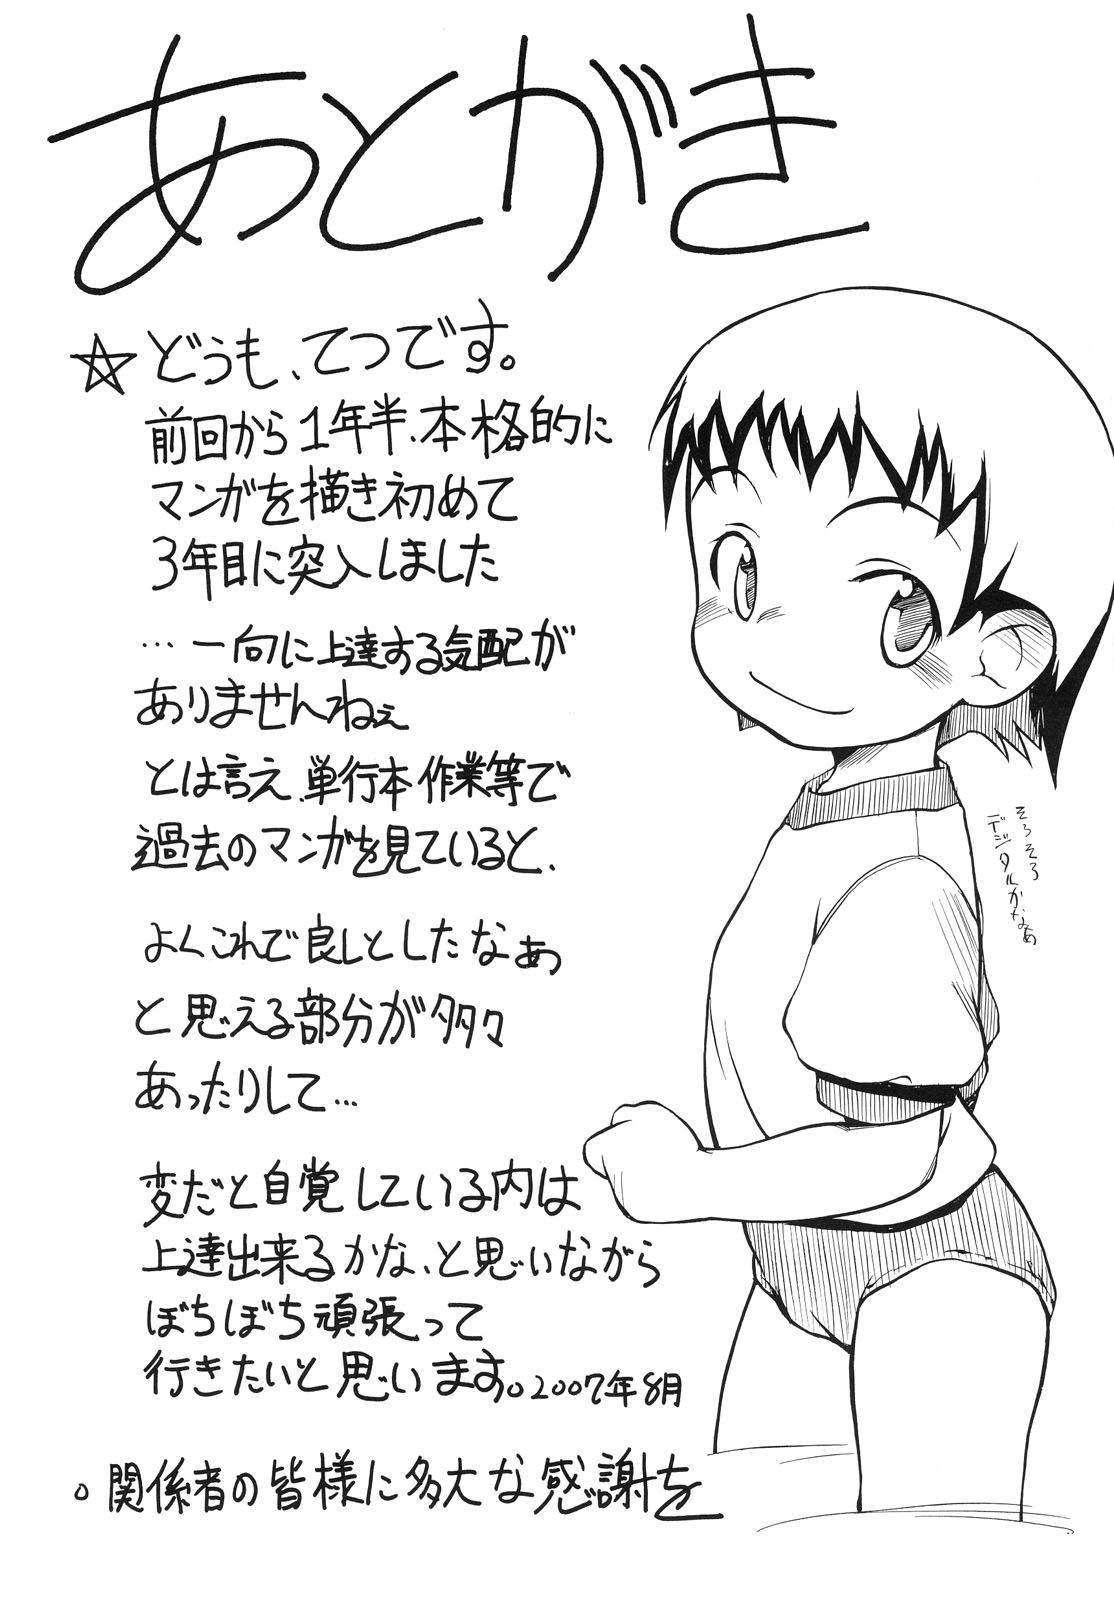 あとがき
☆どうも、てつです。
前回から1年半、本格的に
マンガを描き初めて
3年目に突入しました
…一向に上達する気配が
ありませんねぇ
とは言え、単行本作業等で
過去のマンガを見ていると、
よくこれで良しとしたなぁ
と思える部分が多々
あったりして…
変だと自覚している内は
上達出来るかな、と思いながら
ぼちぼち頑張って
行きたいと思います。2007年8月
。関係者の皆様に多大な感謝を
そろそろ
デジタルかなぁ